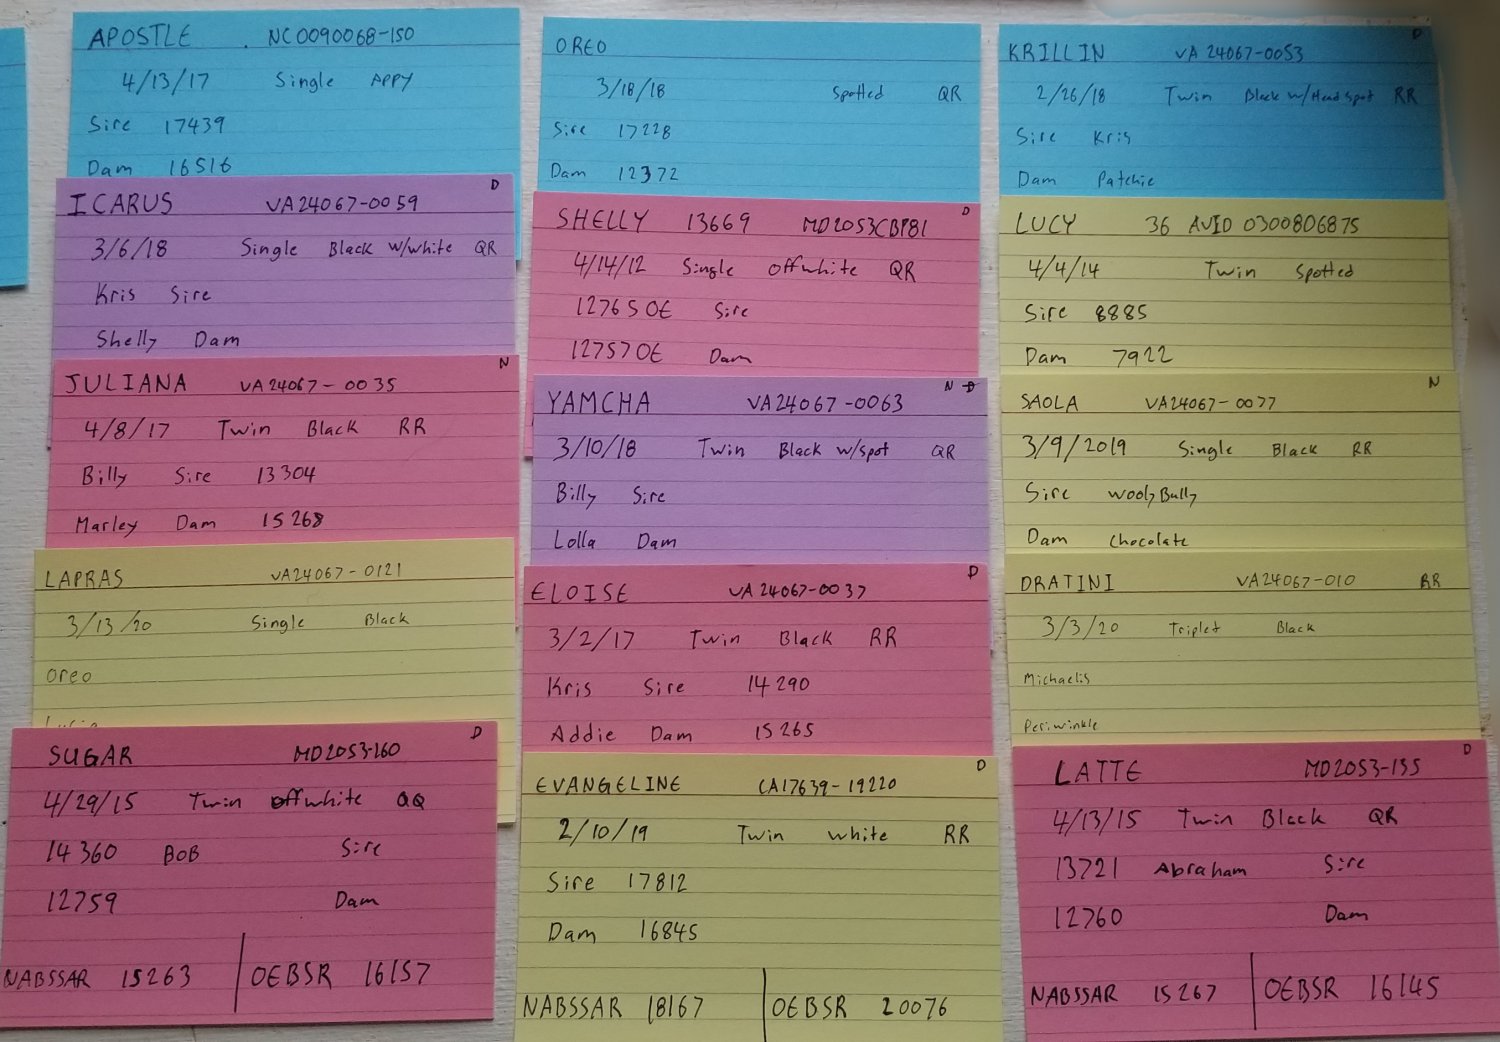 APOSTLE . NC0090068-150
4/13/17 Single APPY
Sire 17439
Dam 16516
D
ICARUS VA24067-0059
3/6/18 Single Black w/white QR
Kris Sire
Shelly Dam
N
JULIANA VA24067-0035
4/8/17 Twin Black RR
Billy Sire 13304
Marley Dam 15268
LAPRAS VA24067-0121
3/13/20 Single Black
Oreo
D
SUGAR MD2053-160
4/29/15 Twin offwhite QQ
14360 BOB Sire
12759 Dam
NABSSAR 15263 OEBSR 16157
OREO
3/18/18 Spotted QR
Sire 17228
Dam 12372
D
SHELLY 13669 MD2053CBP81
4/14/12 Single offwhite QR
12765OE Sire
12757OE Dam
N D
YAMCHA VA24067-0063
3/10/18 Twin Black w/spot QR
Billy Sire
Lolla Dam
D
ELOISE VA24067-0037
3/2/17 Twin Black RR
Kris Sire 14290
Addie Dam 15265
D
EVANGELINE CA17639-19220
2/10/19 Twin white RR
Sire 17812
Dam 16845
NABSSAR 18167 OEBSR 20076
D
KRILLIN VA24067-0053
2/26/18 Twin Black w/Head spot RR
Sire Kris
Dam Patchie
LUCY 36 AVID 0300806875
4/4/14 Twin Spotted
Sire 8885
Dam 7922
N
SAOLA VA24067-0077
3/9/2019 Single Black RR
Sire woolyBully
Dam Chocolate
DRATINI VA24067-010 RR
3/3/20 Triplet Black
Michaelis
Periwinkle
D
LATTE MD2053-155
4/13/15 Twin Black QR
13721 Abraham Sire
12760 Dam
NABSSAR 15267 OEBSR 16145